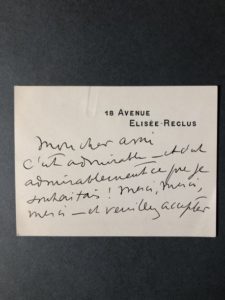 18 AVENUE
ELISÉE-RECLUS
Mon cher ami
c'est admirable – et c'est
admirablement ce que je
souhaitais ! Merci, merci,
merci – et veuillez accepter